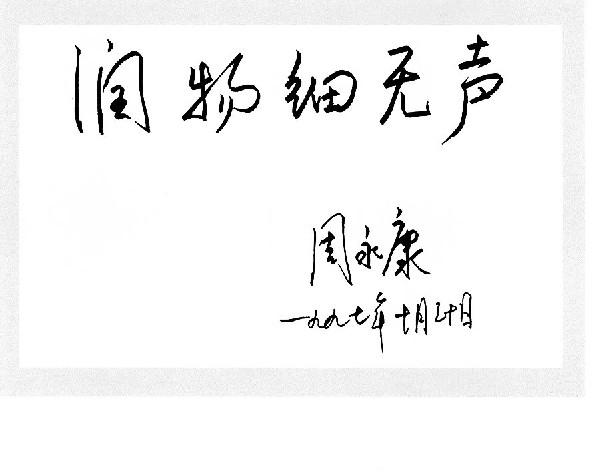 润物细无声
周永康
一九九七年十月三十日